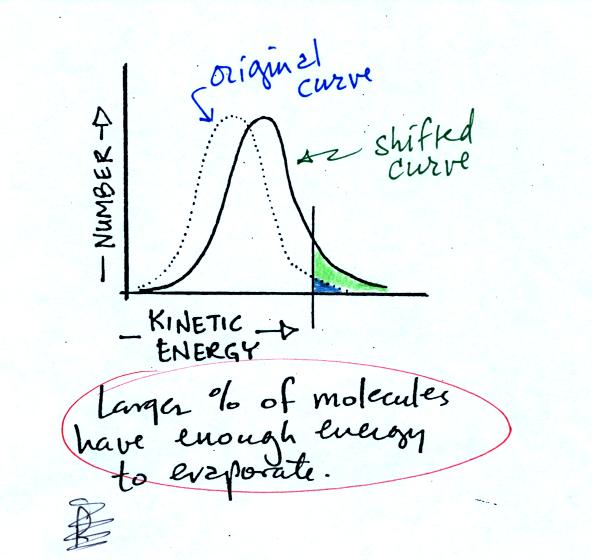 original
curve
shifted
curve
NUMBER
KINETIC
ENERGY
Larger % of molecules
have enough energy
to evaporate.